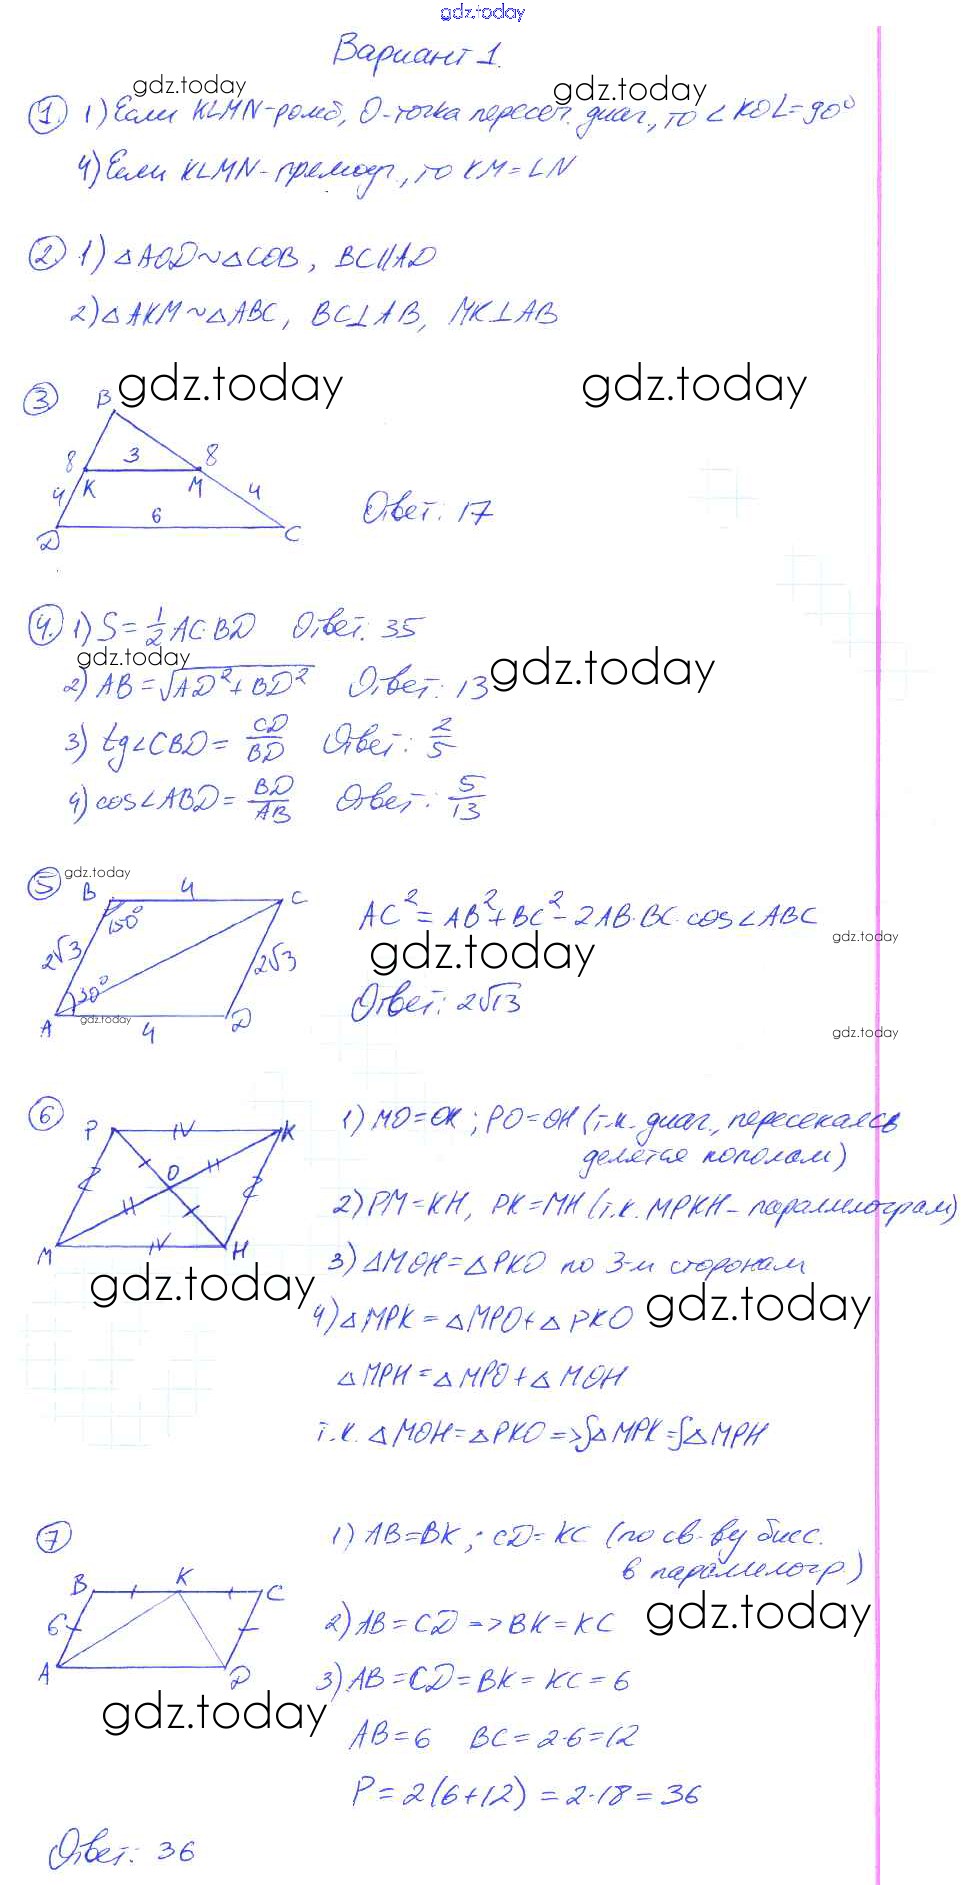 gdz.today
Вариант 1.
gdz.today gdz.today
1. 1) Если KLMN-ромб, O-точка пересеч. диаг., то ∠KOL=90°
4) Если KLMN-прямоуг., то KM=LN
2. 1) △AOD~△COB, BC||AD
2) △AKM~△ABC, BC⊥AB, MK⊥AB
gdz.today gdz.today
3 B
8 3 8
4 K M 4
6
D C
Ответ: 17
4. 1) S=1/2 AC·BD Ответ: 35
gdz.today gdz.today
2) AB=√AD²+BD² Ответ: 13
3) tg∠CBD=CD/BD Ответ: 2/5
4) cos∠ABD=BD/AB Ответ: 5/13
gdz.today
5 B 4 C
150°
2√3 2√3
30°
A 4 D
AC²=AB²+BC²-2AB·BC·cos∠ABC
gdz.today gdz.today
Ответ: 2√13
gdz.today gdz.today
6 P K
O
M H
1) MO=OK; PO=OH (т.к. диаг., пересекаясь
делятся пополам)
2) PM=KH, PK=MH (т.к. MPKH-параллелограм)
3) △MOH=△PKO по 3-м сторонам
gdz.today gdz.today
4) △MPK=△MPO+△PKO
△MPH=△MPO+△MOH
т.к. △MOH=△PKO=>S△MPK=S△MPH
7 B K C
6
A D
1) AB=BK; CD=KC (по св-ву бисс.
в параллелогр.)
gdz.today
2) AB=CD=>BK=KC
3) AB=CD=BK=KC=6
gdz.today
AB=6 BC=2·6=12
P=2(6+12)=2·18=36
Ответ: 36